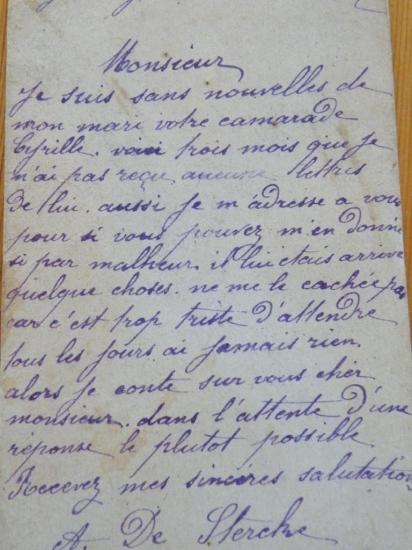 Monsieur
Je suis sans nouvelles de
mon mari votre camarade
Cyrille. voici trois mois que je
n'ai pas reçu aucune lettres
de lui. aussi je m'adresse a vous
pour si vous pouvez m'en donne
si par malheur. il lui etais arrive
quelque choses. ne me le cachée pas
car c'est trop triste d'attendre
tous les jours ai jamais rien.
alors je conte sur vous cher
monsieur. dans l'attente d'une
réponse le plutot possible
Recevez mes sincères salutation
A. De Stercke